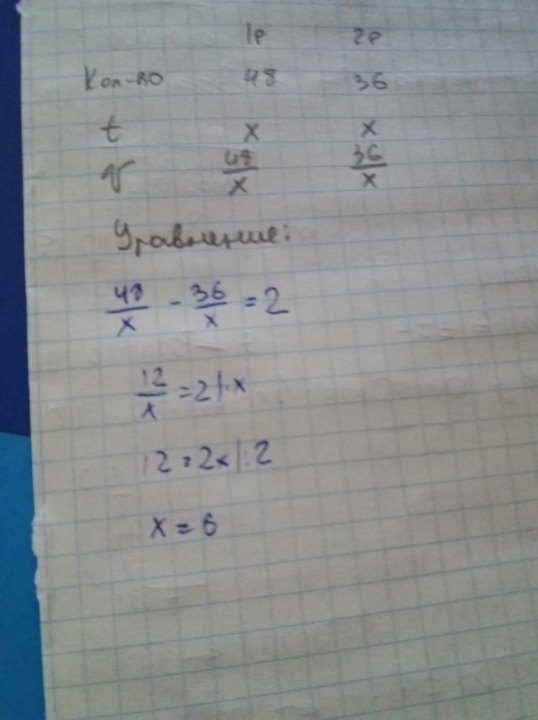 1р 2р
Кол-во 48 36
t x x
V 48/x 36/x
Уравнение:
48/x - 36/x = 2
12/x = 2 |·x
12 = 2x |:2
x = 6